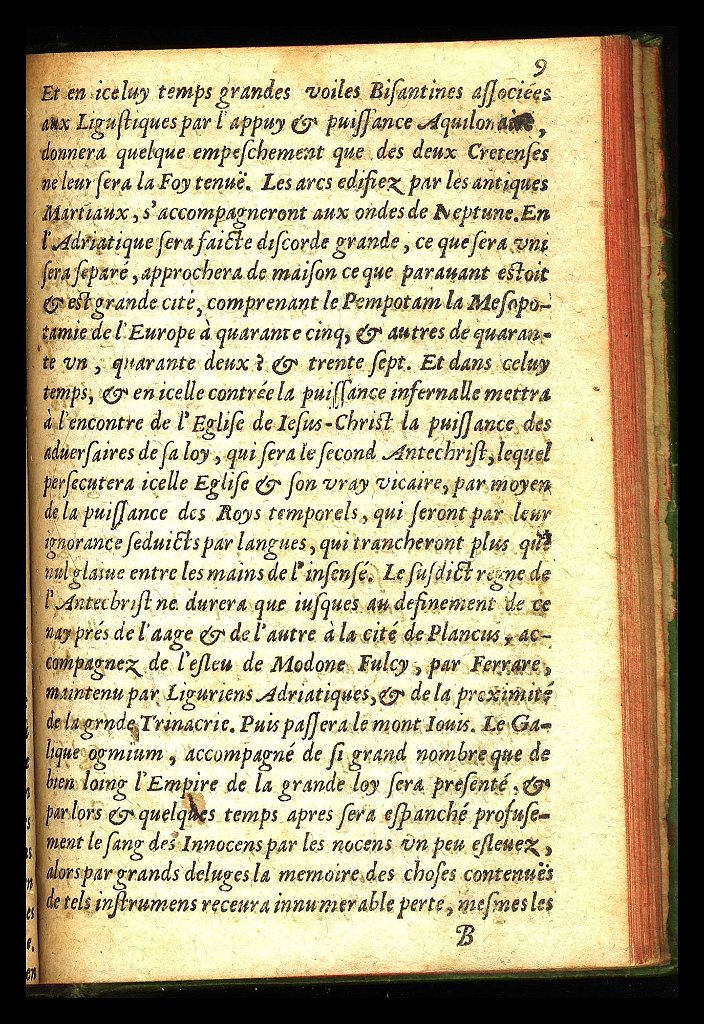 9
Et en iceluy temps grandes voiles Biſantines aſſociées
aux Liguſtiques par l'appuy & puiſſance Aquilonaire,
donnera quelque empeſchement que des deux Cretenſes
ne leur ſera la Foy tenuë. Les arcs edifiez par les antiques
Martiaux, s'accompagneront aux ondes de Neptune. En
l'Adriatique ſera faicte diſcorde grande, ce que ſera vni
ſera ſeparé, approchera de maiſon ce que parauant eſtoit
& eſt grande cité, comprenant le Pempotam la Meſopo-
tamie de l'Europe à quarante cinq, & autres de quaran-
te vn, quarante deux? & trente ſept. Et dans celuy
temps, & en icelle contrée la puiſſance infernalle mettra
à l'encontre de l'Egliſe de Ieſus-Chriſt la puiſſance des
aduerſaires de ſa loy, qui ſera le ſecond Antechriſt, lequel
perſecutera icelle Egliſe & ſon vray vicaire, par moyen
de la puiſſance des Roys temporels, qui ſeront par leur
ignorance ſeduicts par langues, qui trancheront plus que
nul glaiue entre les mains de l'inſenſé. Le ſuſdict regne de
l'Antechriſt ne durera que iuſques au definement de ce
nay prés de l'aage & de l'autre à la cité de Plancus, ac-
compagnez de l'eſleu de Modone Fulcy, par Ferrare,
maintenu par Liguriens Adriatiques, & de la proximité
de la grnde Trinacrie. Puis paſſera le mont Iouis. Le Ga-
lique ogmium, accompagné de ſi grand nombre que de
bien loing l'Empire de la grande loy ſera preſenté, &
par lors & quelques temps apres ſera eſpanché profuſe-
ment le ſang des Innocens par les nocens vn peu eſleuez,
alors par grands deluges la memoire des choſes contenuës
de tels inſtrumens receura innumerable perte, meſmes les
B